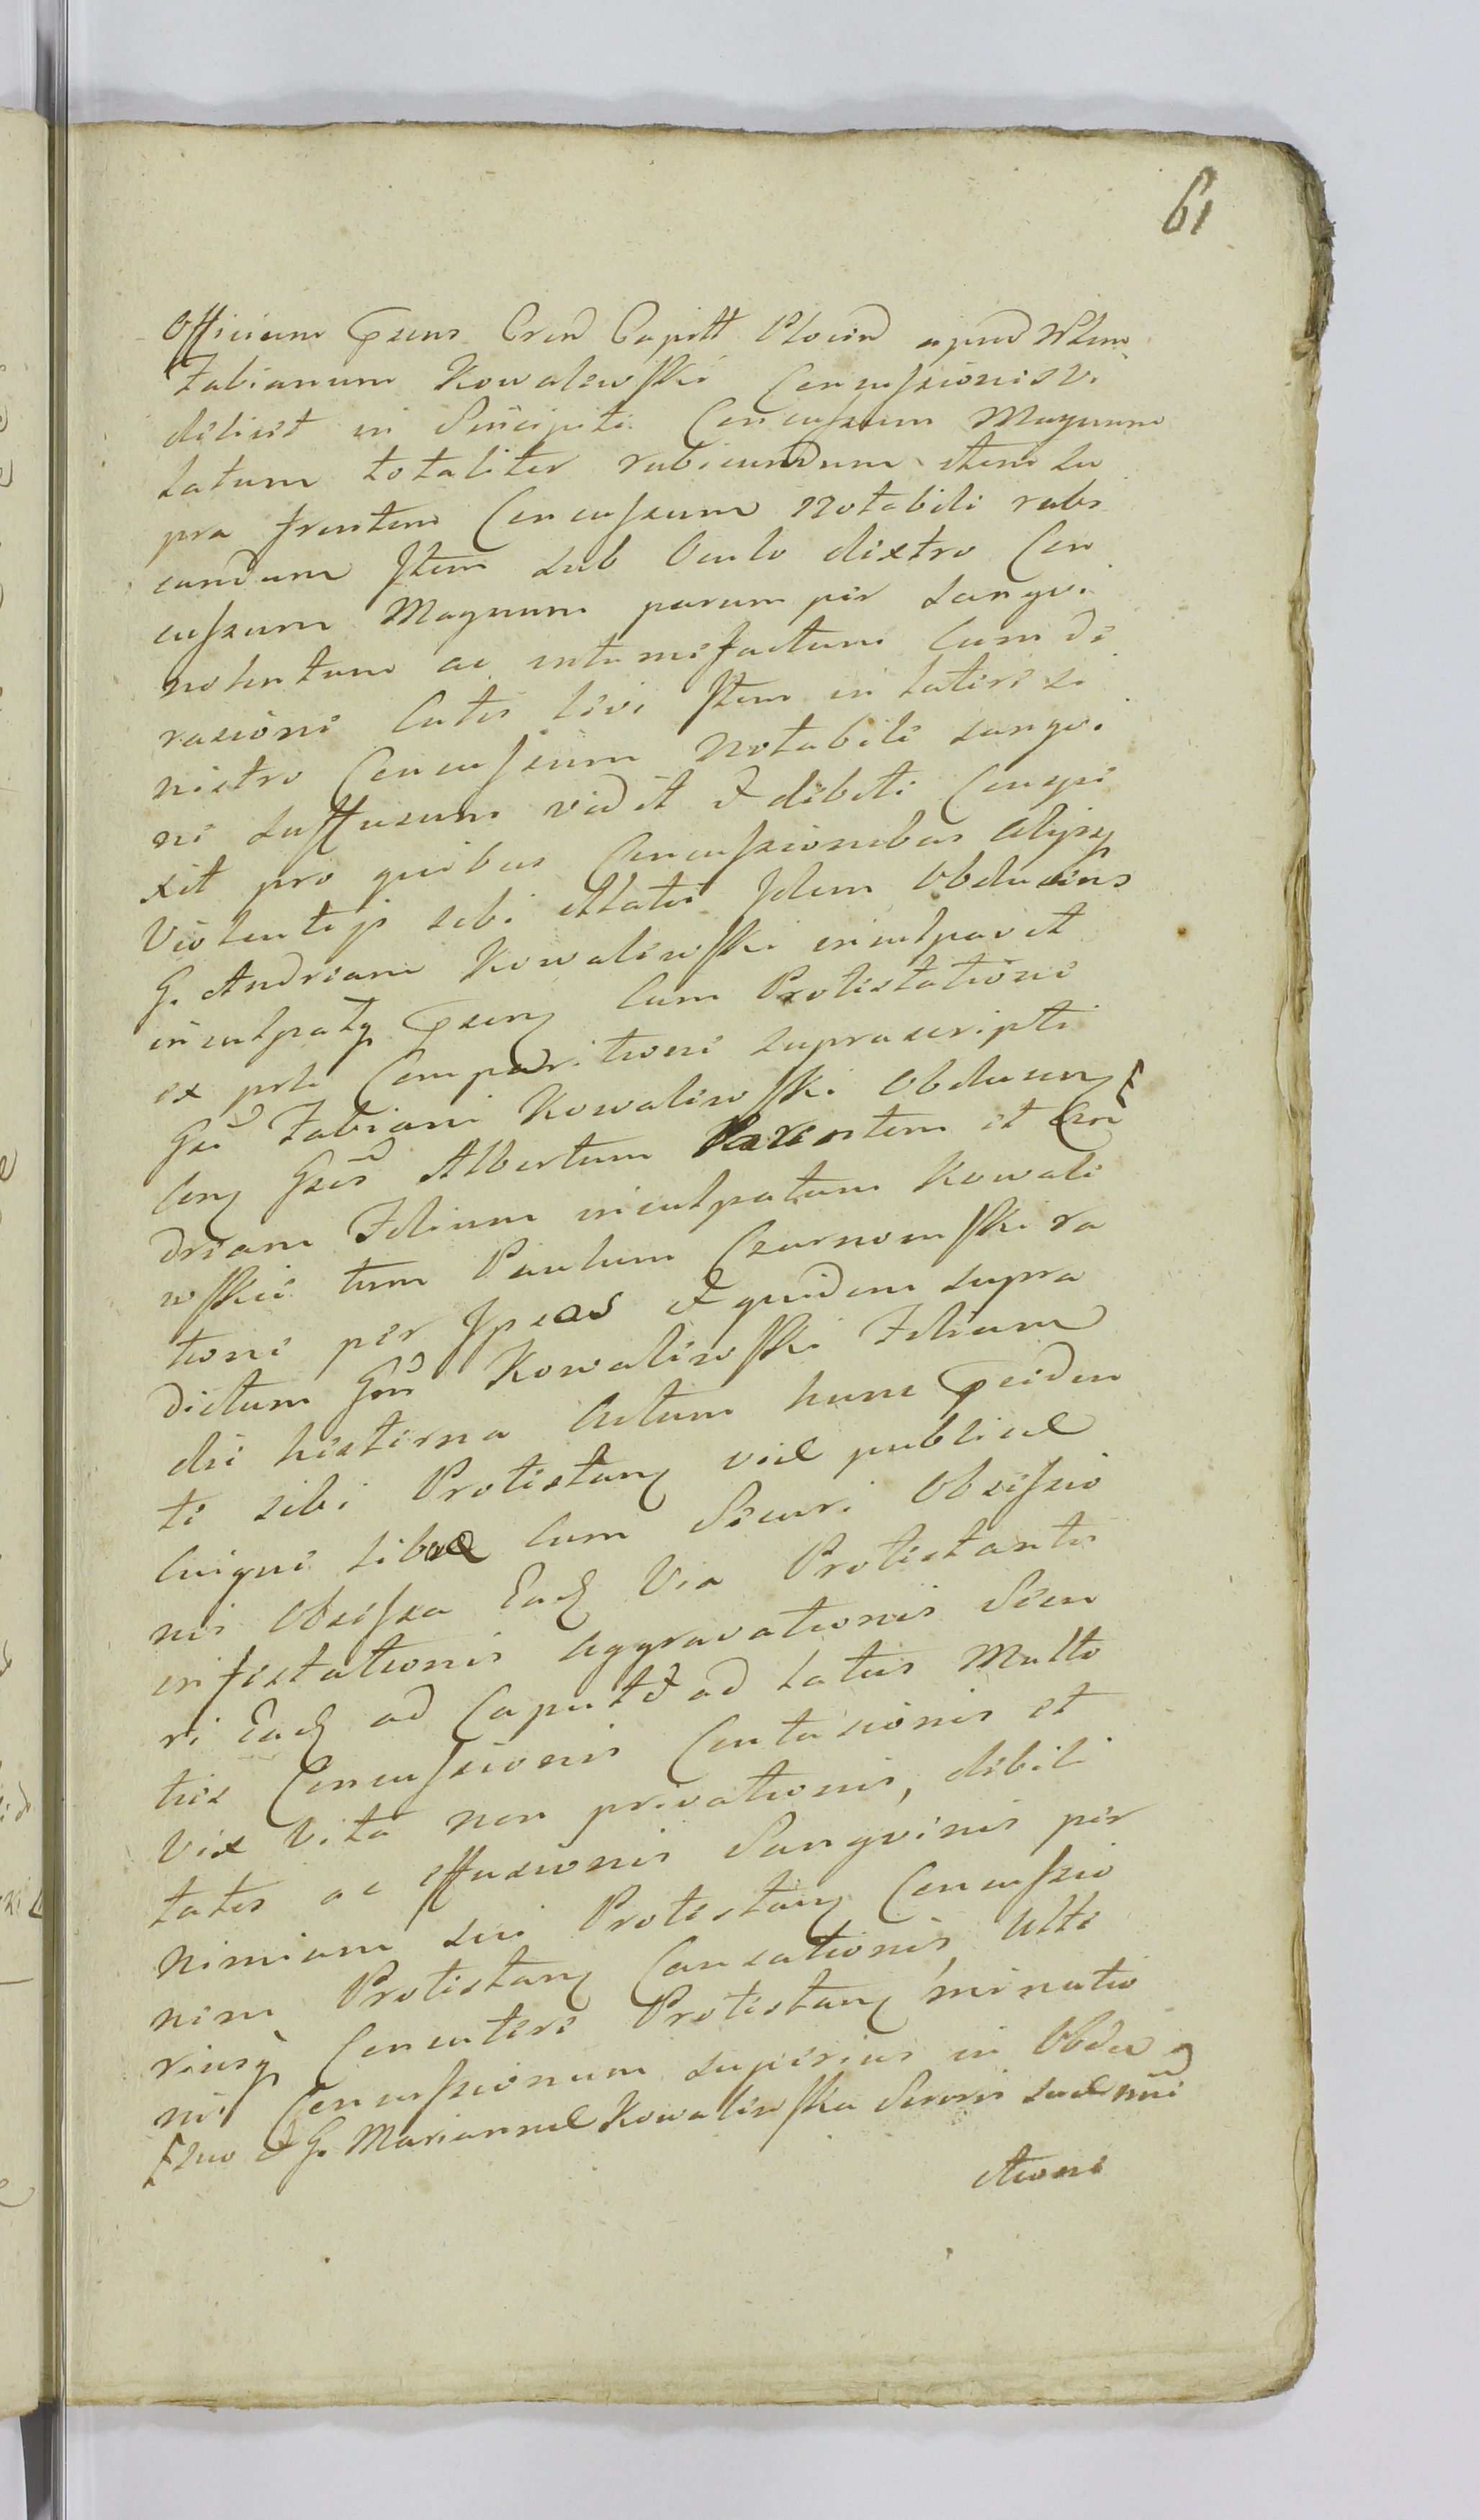 61
Officium Psens Cren Capitt Plocen apud Nlem
Fabianum Kowalewski Concussionis vi
delicet in Sincipite Concussum Magnum
latum totaliter rubicundum item su
pra frontem Concussum Notabile rubi
cundum Item sub Oculo dextro Con
cussum Magnum parumper sangvi
nolentum ac intumefactum cum de
rasione Cutis levi Item in latere si
nistro Concussum Notabile sangvi
ne suffusum vidit et debite Conspe
xit pro quibus Concussionibus Alijsq
Violentijs sibi illatis Idem Obducens
G. Andream Kowalewski inculpavit
inculpatq Psenq Cum Protestatione
ex prte Comparitione suprascripti
Gsi Fabiani Kowalewski Obducenq
Conq Gsos Albertum Parentem et An
dream Filium inculpatum Kowale
wskie tum Paulum Czarnomski ra
tione per Ipsos et quidem supra
dictum Gsu Kowalewski Filium
die hesterna Actum hunc Pceiden
te sibi Protestanq viae publicae
Cuique liberae Cum Securi Obsessio
nis Obsessa Eadq Via Protestantis
infestationis aggravationis Secu
ri Eadq ad Caput et ad latus Multo
ties Concussionis Contusionis et
Vix Vita non privationis, debili
tatis ac effusionis Sangvinis per
nimiam sui Protestanq Concussio
nem Protestanq Causationis Ulte
riusq Concutere Protestanq minatio
nis Concussionum superius in Obdu
suo et G. Mariannae Kowalewska Sororis suae nni
ctione